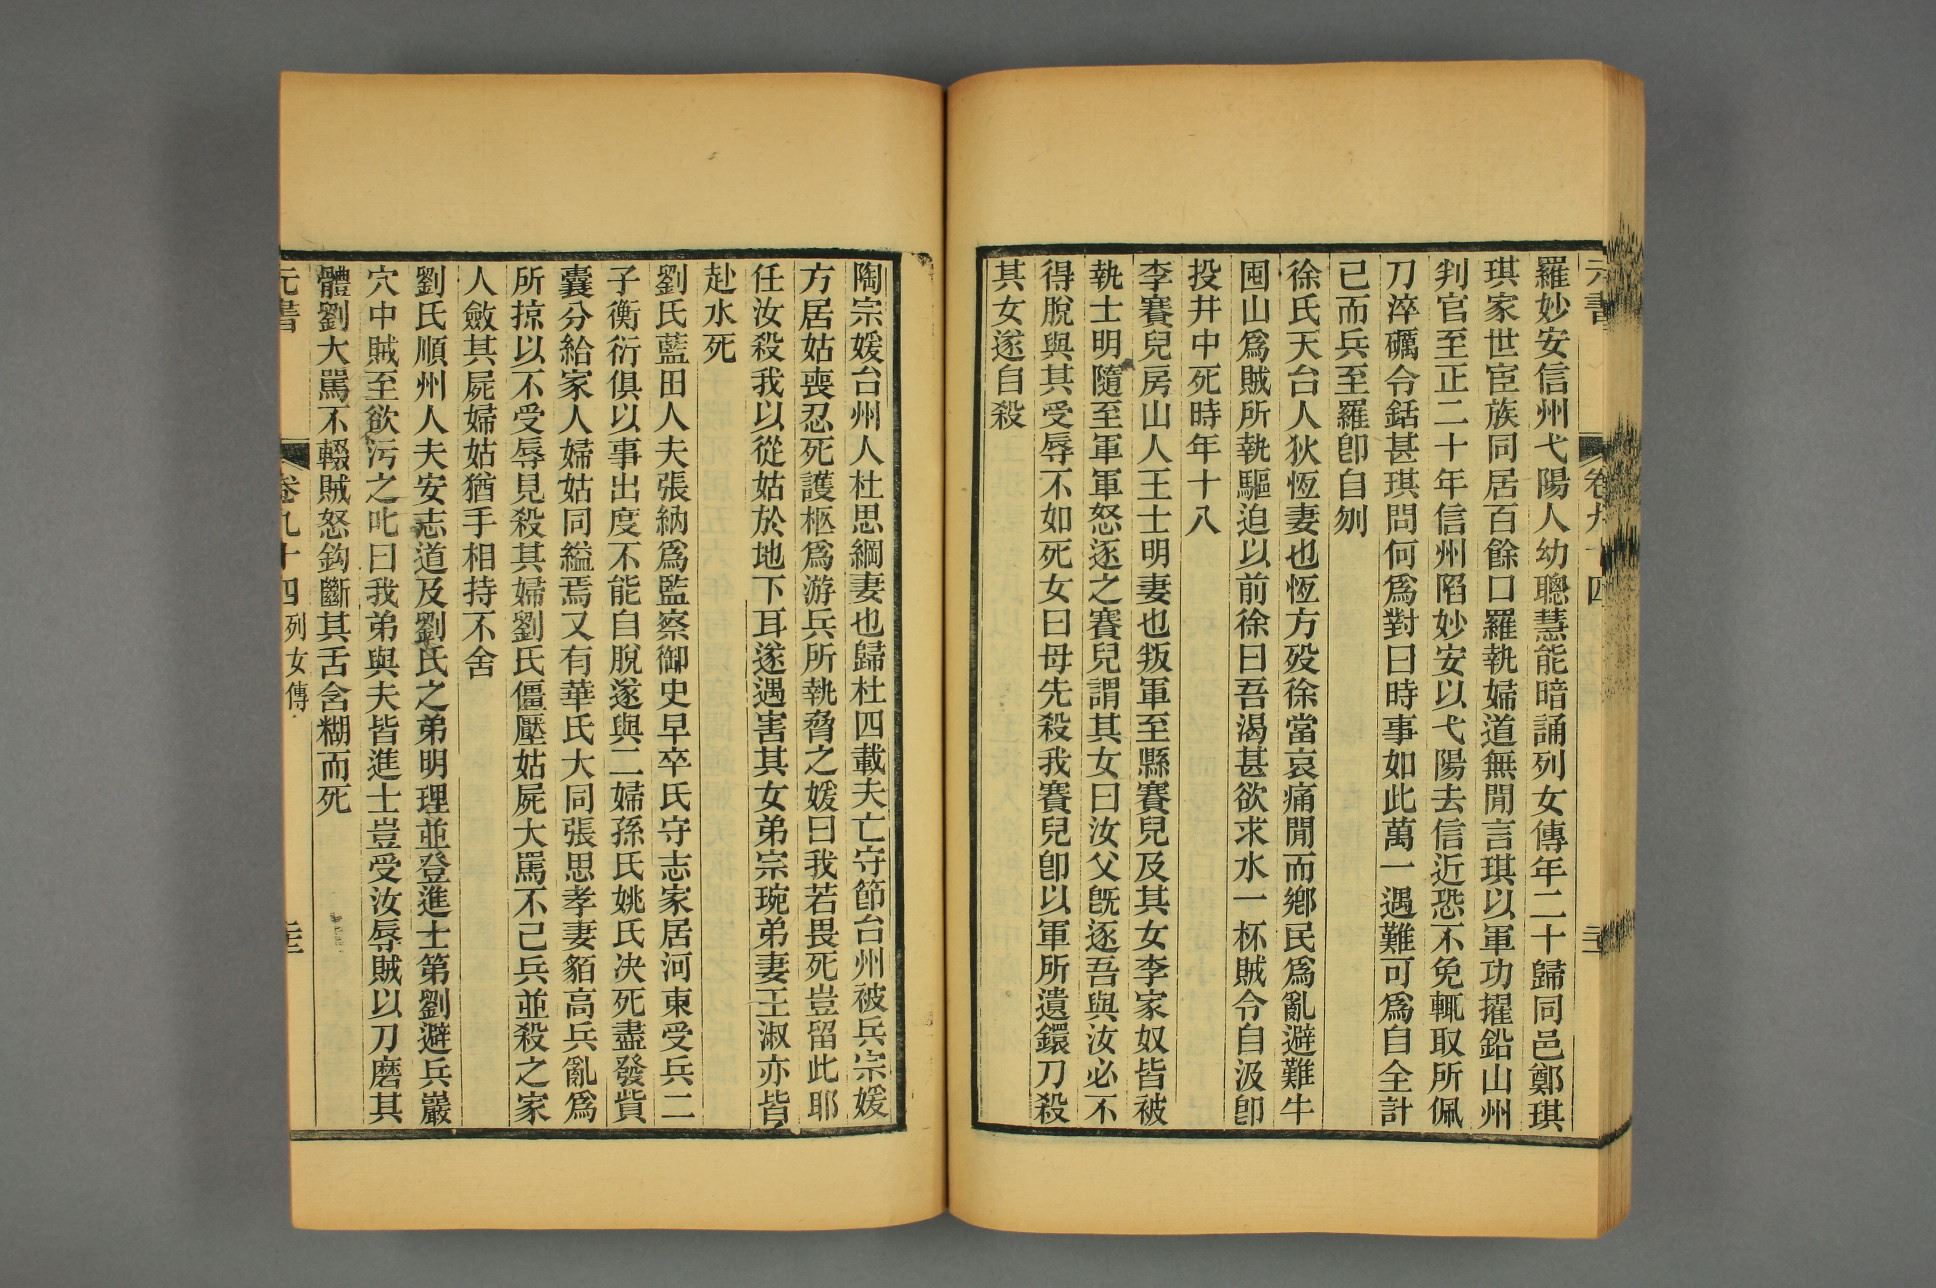 元書
卷九十四
羅妙安信州弋陽人幼聰慧能暗誦列女傳年二十歸同邑鄭琪
琪家世宦族同居百餘口羅執婦道無閒言琪以軍功擢鉛山州
判官至正二十年信州陷妙安以弋陽去信近恐不免輒取所佩
刀淬礪令銛甚琪問何爲對曰時事如此萬一遇難可爲自全計
已而兵至羅卽自刎
徐氏天台人狄恆妻也恆方歿徐當哀痛閒而鄉民爲亂避難牛
囤山爲賊所執驅迫以前徐曰吾渴甚欲求水一杯賊令自汲卽
投井中死時年十八
李賽兒房山人王士明妻也叛軍至縣賽兒及其女李家奴皆被
執士明隨至軍軍怒逐之賽兒謂其女曰汝父旣逐吾與汝必不
得脫與其受辱不如死女曰母先殺我賽兒卽以軍所遺鐶刀殺
其女遂自殺
陶宗媛台州人杜思綱妻也歸杜四載夫亡守節台州被兵宗媛
方居姑喪忍死護柩爲游兵所執脅之媛曰我若畏死豈留此耶
任汝殺我以從姑於地下耳遂遇害其女弟宗琬弟妻王淑亦皆
赴水死
劉氏藍田人夫張納爲監察御史早卒氏守志家居河東受兵二
子衡衍俱以事出度不能自脫遂與二婦孫氏姚氏決死盡發貲
囊分給家人婦姑同縊焉又有華氏大同張思孝妻貊高兵亂爲
所掠以不受辱見殺其婦劉氏僵壓姑屍大罵不已兵並殺之家
人斂其屍婦姑猶手相持不舍
劉氏順州人夫安志道及劉氏之弟明理並登進士第劉避兵巖
穴中賊至欲污之叱曰我弟與夫皆進士豈受汝辱賊以刀磨其
體劉大罵不輟賊怒鉤斷其舌含糊而死
元書
卷九十四 列女傳